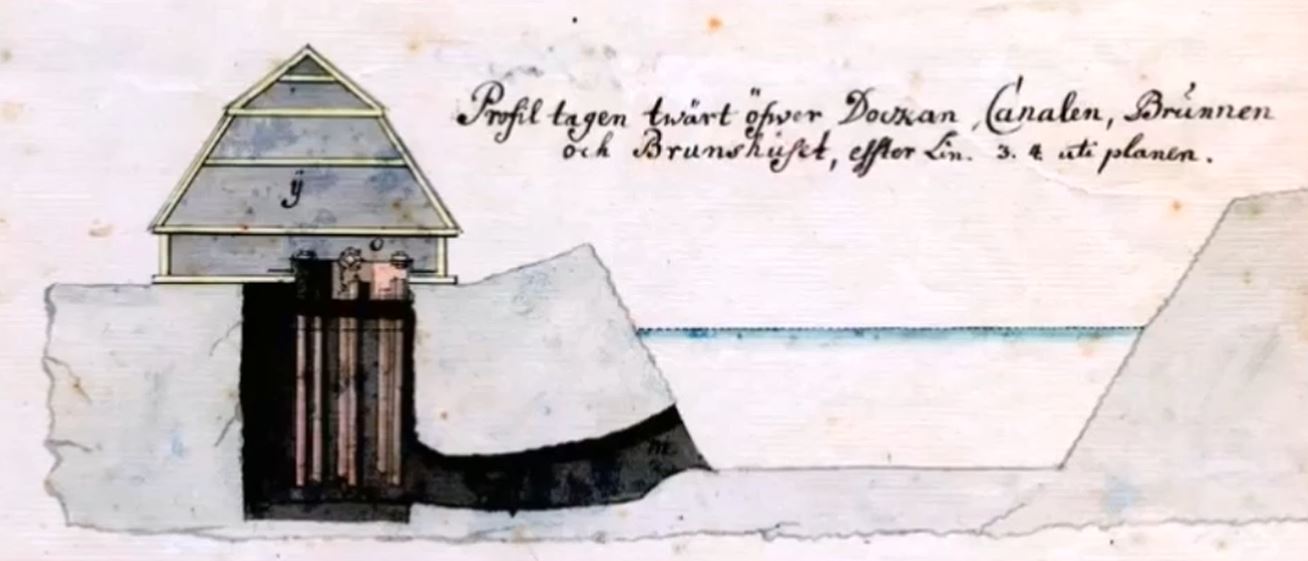 Profil tagen twärt öfwer Dockan, Canalen, Brŭnnen
och Brunshŭset, effter Lin. 3. 4 uti planen.
ÿ
o
m